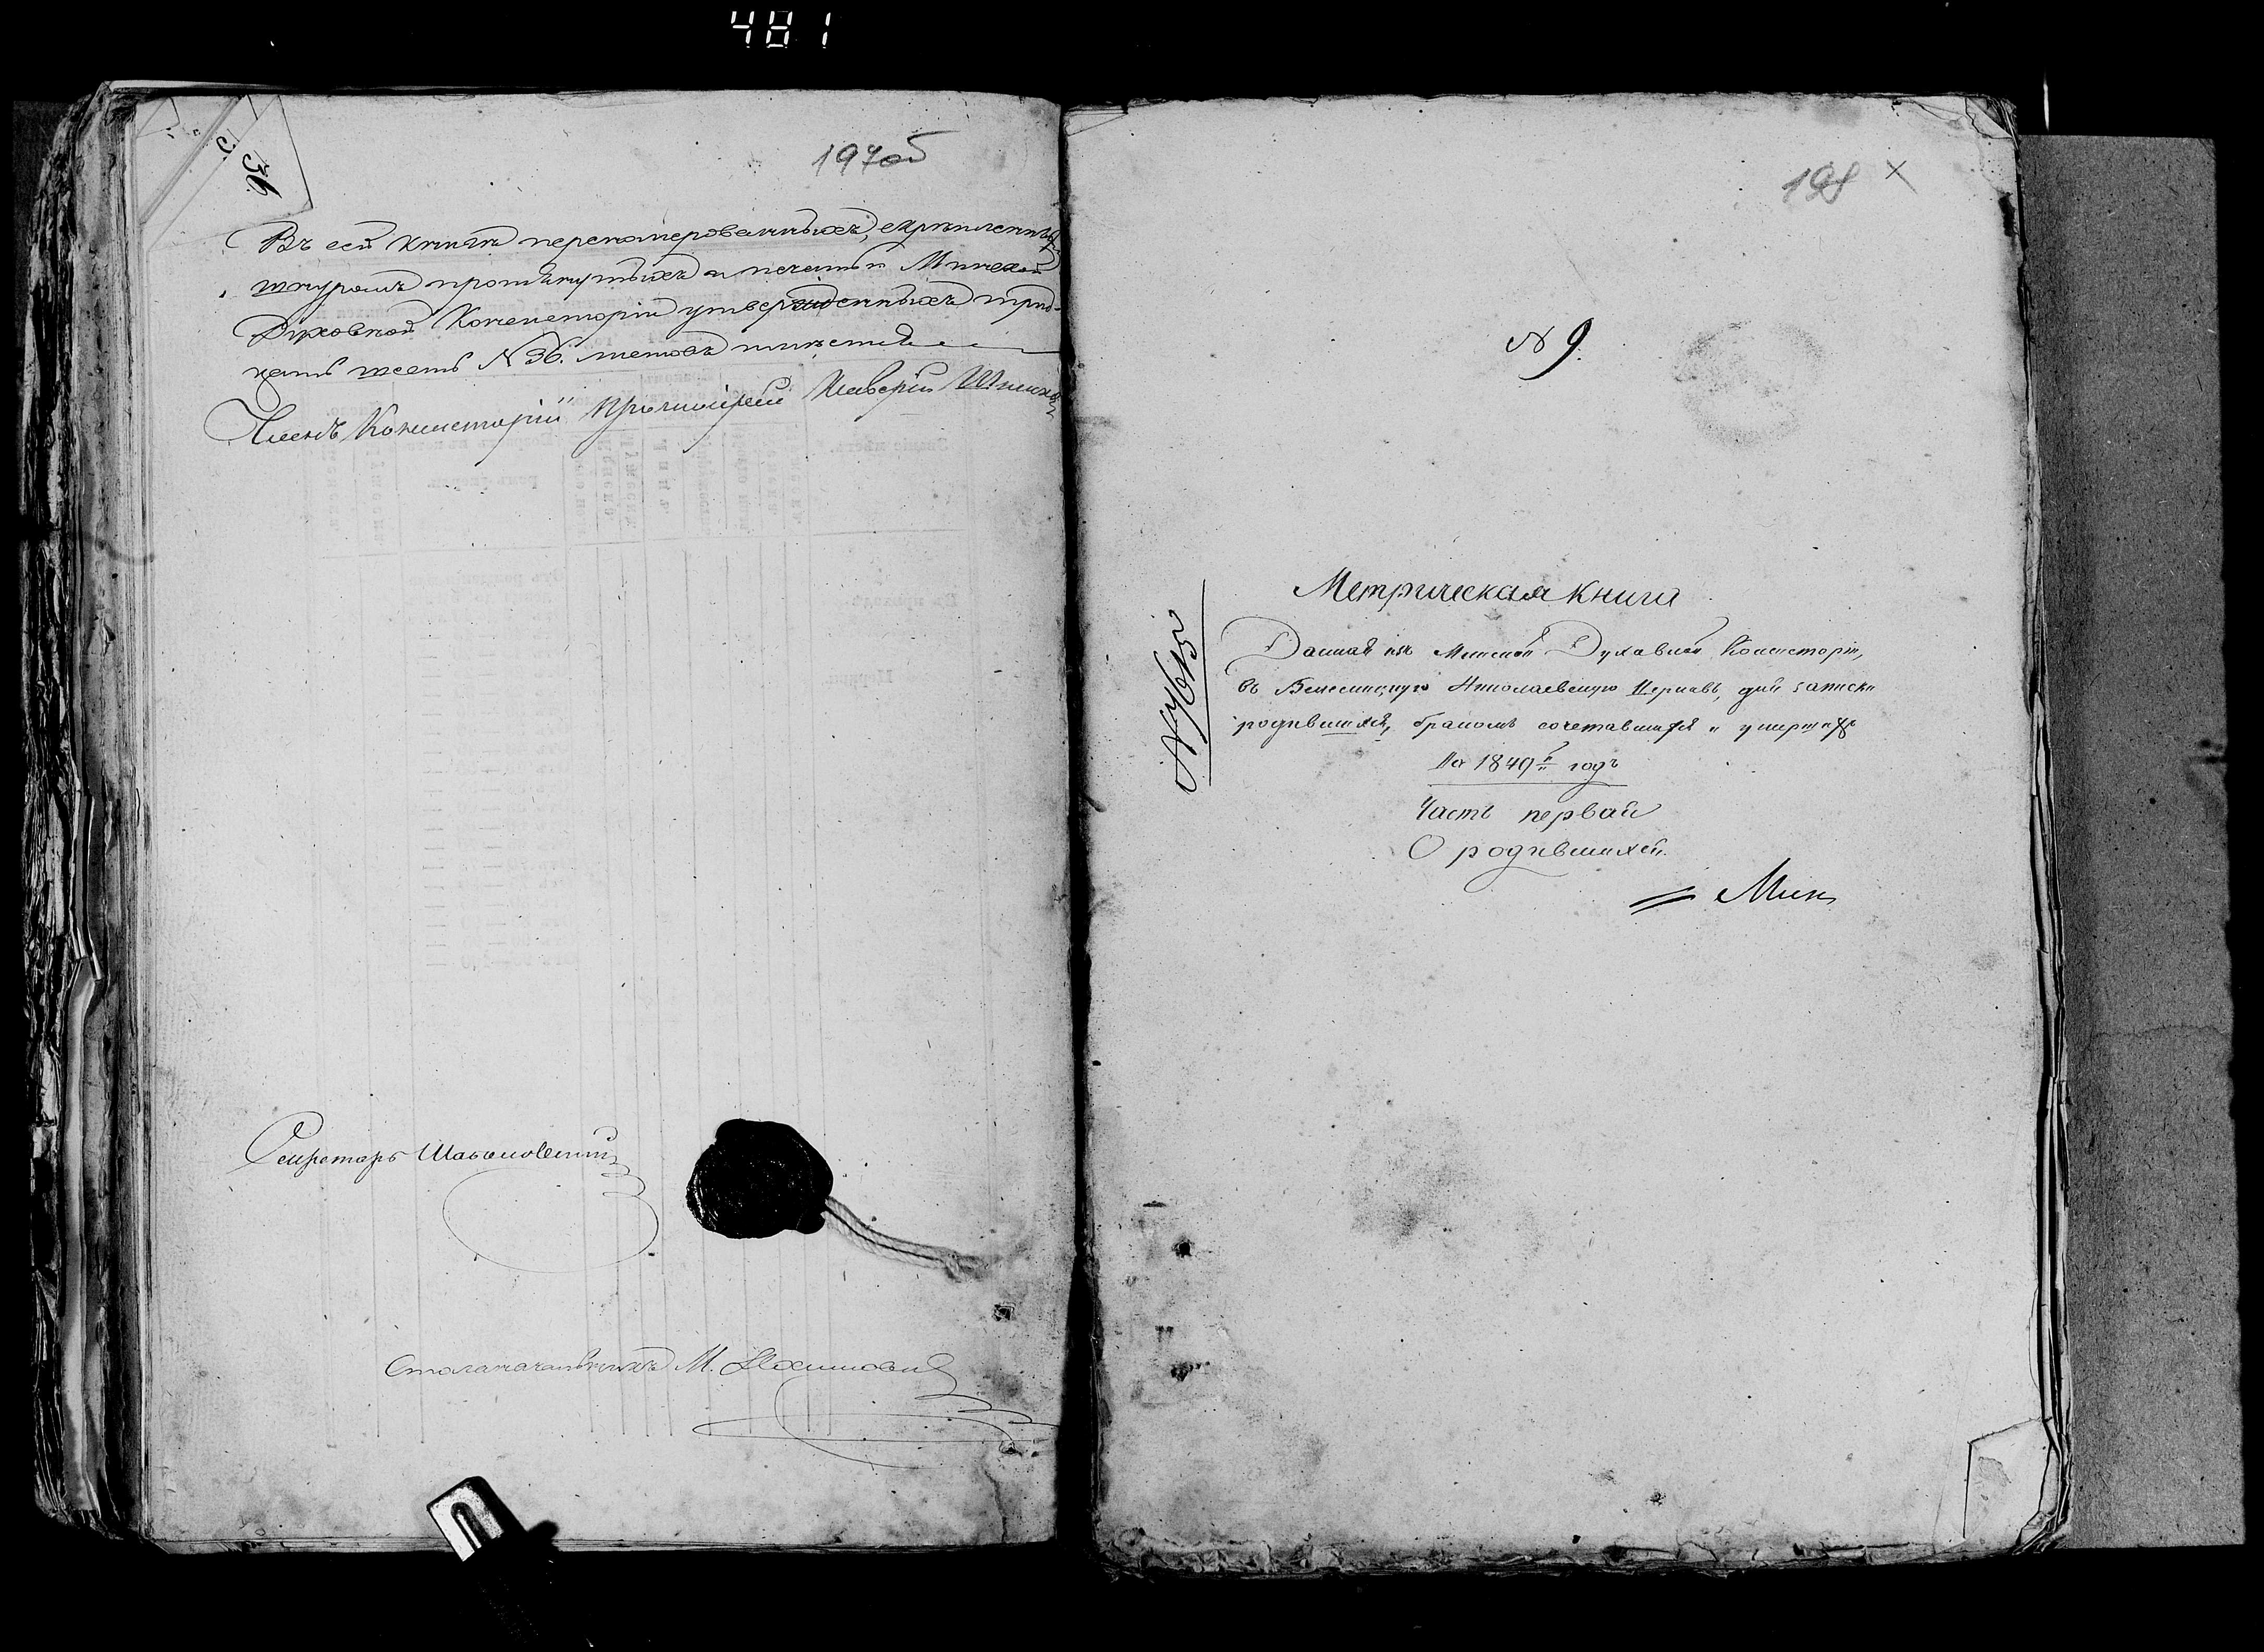 481
36
197об
Въ сей книгѣ перенумерованныхъ, скрѣпленныхъ
шнуромъ протянутыхъ и печатью Минской
Духовной Консисторіи утвержденныхъ трид-
цать шесть N 36. листовъ
Членъ Консисторіи Протоіерей
Секретарь
Столоначальникъ М.
198
N 9.
Метрическая книга
Данная изъ Минской Духовной Консисторіи,
въ Николаевскую Церковь, для записки
родившихся, бракомъ сочетавшихся и умершихъ
На 1849й годъ
Часть первая
О родившихся.
N 7615